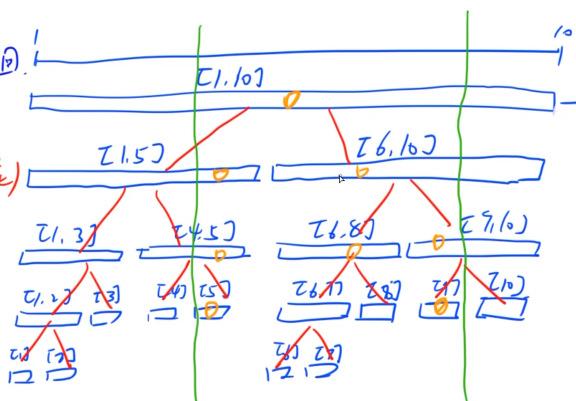 1 10
[1,10]
[1,5] [6,10]
[1,3] [4,5] [6,8] [9,10]
[1,2] [3] [4] [5] [6,7] [8] [9] [10]
[1] [2] [6] [7]